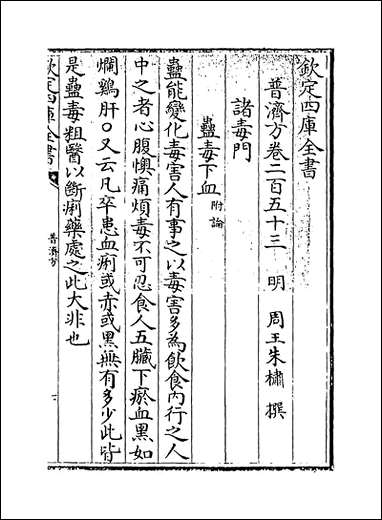 欽定四庫全書
普濟方卷二百五十三 明 周王朱橚 撰
諸毒門
蠱毒下血附論
蠱能變化毒害人有事之以毒害多為飲食內行之人
中之者心腹懊痛煩毒不可忍食人五臟下瘀血黑如
爛鷄肝〇又云凡卒患血痢或赤或黑無有多少此皆
是蠱毒粗醫以斷痢藥處之此大非也
欽定四庫全書
普濟方